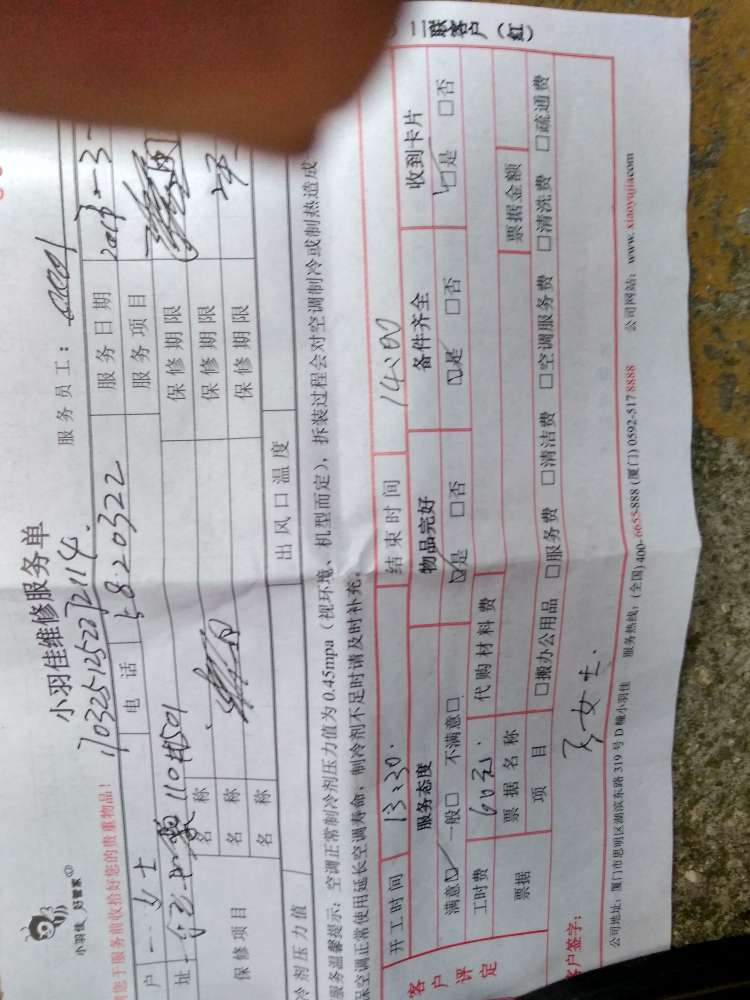 二联客户(红)
小羽佳 好管家
小羽佳维修服务单
服务员工:
请您于服务前收拾好您的贵重物品!
户 女士 电话 5820322 服务日期
址 110#501 服务项目
保修项目 名称 保修期限
名称 保修期限
名称 保修期限
冷剂压力值 出风口温度
服务温馨提示:空调正常制冷剂压力值为0.45mpa(视环境、机型而定),拆装过程会对空调制冷或制热造成
保空调正常使用延长空调寿命,制冷剂不足时请及时补充。
客户评定
开工时间 13:30 结束时间 14:00
服务态度 物品完好 备件齐全 收到卡片
满意☑ 一般□ 不满意□ ☑是 □否 ☑是 □否 ☑是 □否
工时费 60元 代购材料费
票据 票据名称 票据金额
项目 □搬办公用品 □服务费 □清洁费 □空调服务费 □清洗费 □疏通费
客户签字: 女士
公司地址:厦门市思明区湖滨东路319号D幢小羽佳 服务热线:(全国)400-6655-888 (厦门) 0592-517 8888 公司网站:www.xiaoyujia.com